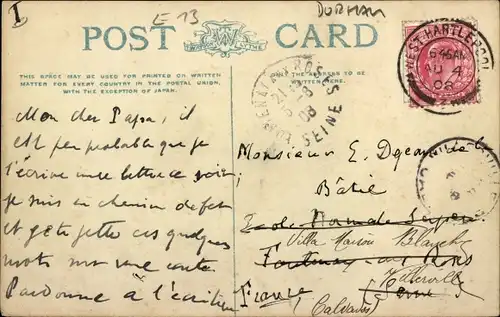 I
E 13
DURHAM
POST CARD
THIS SPACE MAY BE USED FOR PRINTED OR WRITTEN
MATTER FOR EVERY COUNTRY IN THE POSTAL UNION,
WITH THE EXCEPTION OF JAPAN.
THE ADDRESS TO BE
WEST HARTLEPOOL
6.45AM
4
08
ROSES
SEINE
08
Mon cher Papa, il
est peu probable que je
t'écrive une lettre ce soir;
je suis en chemin de fer
et je te jette ces quelques
mots sur une carte.
Pardonne à l'écriture
Monsieur E.
Ecole Normale Super.
Villa Maison Blanche
Fontenay aux Roses
Seine
France
(Calvados)